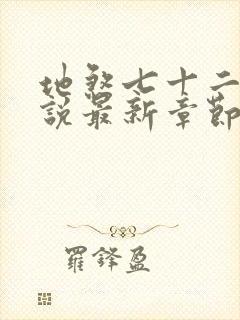 地煞七十二
說最新章節
羅鋒盈